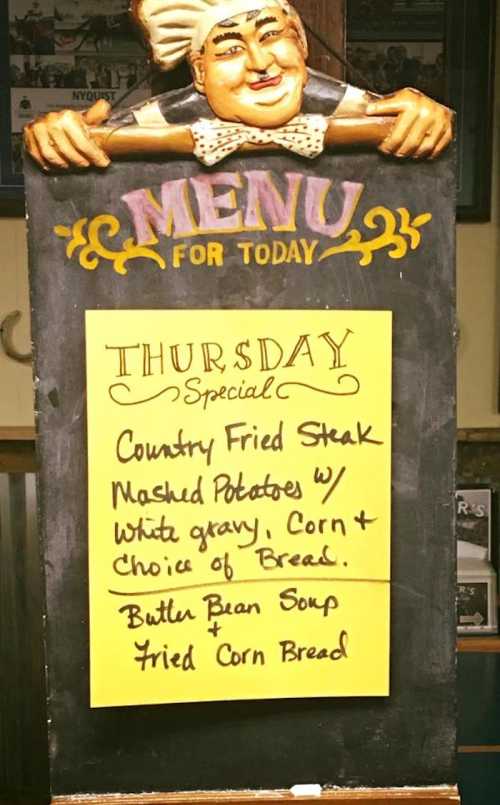 NYQUIST
MENU
FOR TODAY
THURSDAY
Special
Country Fried Steak
Mashed Potatoes w/
White gravy, Corn +
Choice of Bread.
Butter Bean Soup
+
Fried Corn Bread
R'S